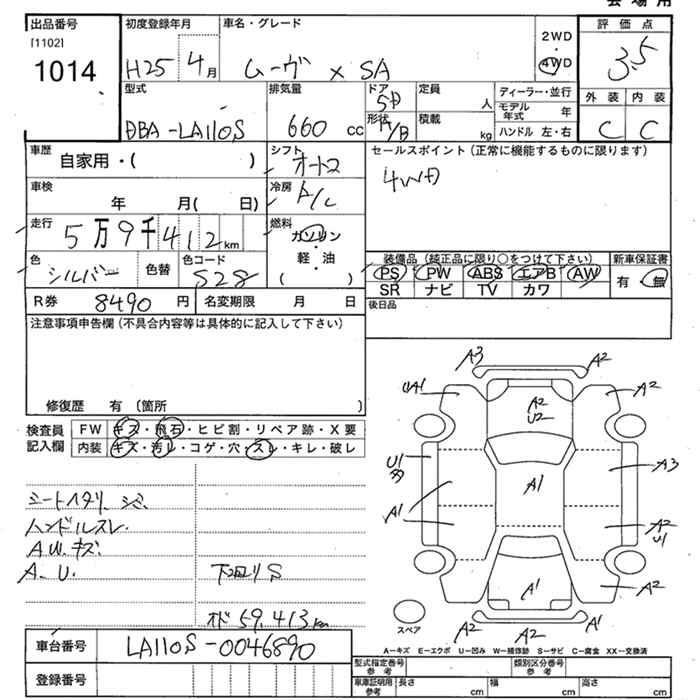 会場用
出品番号 初度登録年月 車名・グレード 評価点
[1102]
1014
H25 4月 ムーヴ X SA 2WD・4WD 3.5
型式 排気量 ドア 定員 ディーラー・並行 外装 内装
5D 人 モデル年式 年
DBA-LA110S 660cc 形状 H/B 積載 kg ハンドル 左・右 C C
車歴 自家用・( ) シフト オート セールスポイント(正常に機能するものに限ります)
4WD
車検 年 月( 日) 冷房 A/C
走行 5万9千412km 燃料 ガソリン・軽・油 ( )
色 シルバー 色替 色コード S28
装備品(純正品に限り○をつけて下さい) 新車保証書
PS PW ABS エアB AW 有・無
SR ナビ TV カワ
R券 8490円 名変期限 月 日 後日品
注意事項申告欄(不具合内容等は具体的に記入して下さい)
修復歴 有 (箇所 )
検査員記入欄 FW キズ・飛石・ヒビ割・リペア跡・X要
内装 キズ・汚レ・コゲ・穴・スレ・キレ・破レ
シートヘタリ シミ
ハンドルスレ
A.W.キズ
A.U. 下回リS
オド 59,413km
A3 A2
A1 A2 U2 A2
U1 A1 A3
A1 A2 U1
A1 A2
A2 A2 A1
スペア
A-キズ E-エクボ U-凹み W-補修跡 S-サビ C-腐食 XX-交換済
車台番号 LA110S-0046890
登録番号
型式指定番号 参考 類別区分番号 参考
車庫証明用 参考 長さ cm 幅 cm 高さ cm